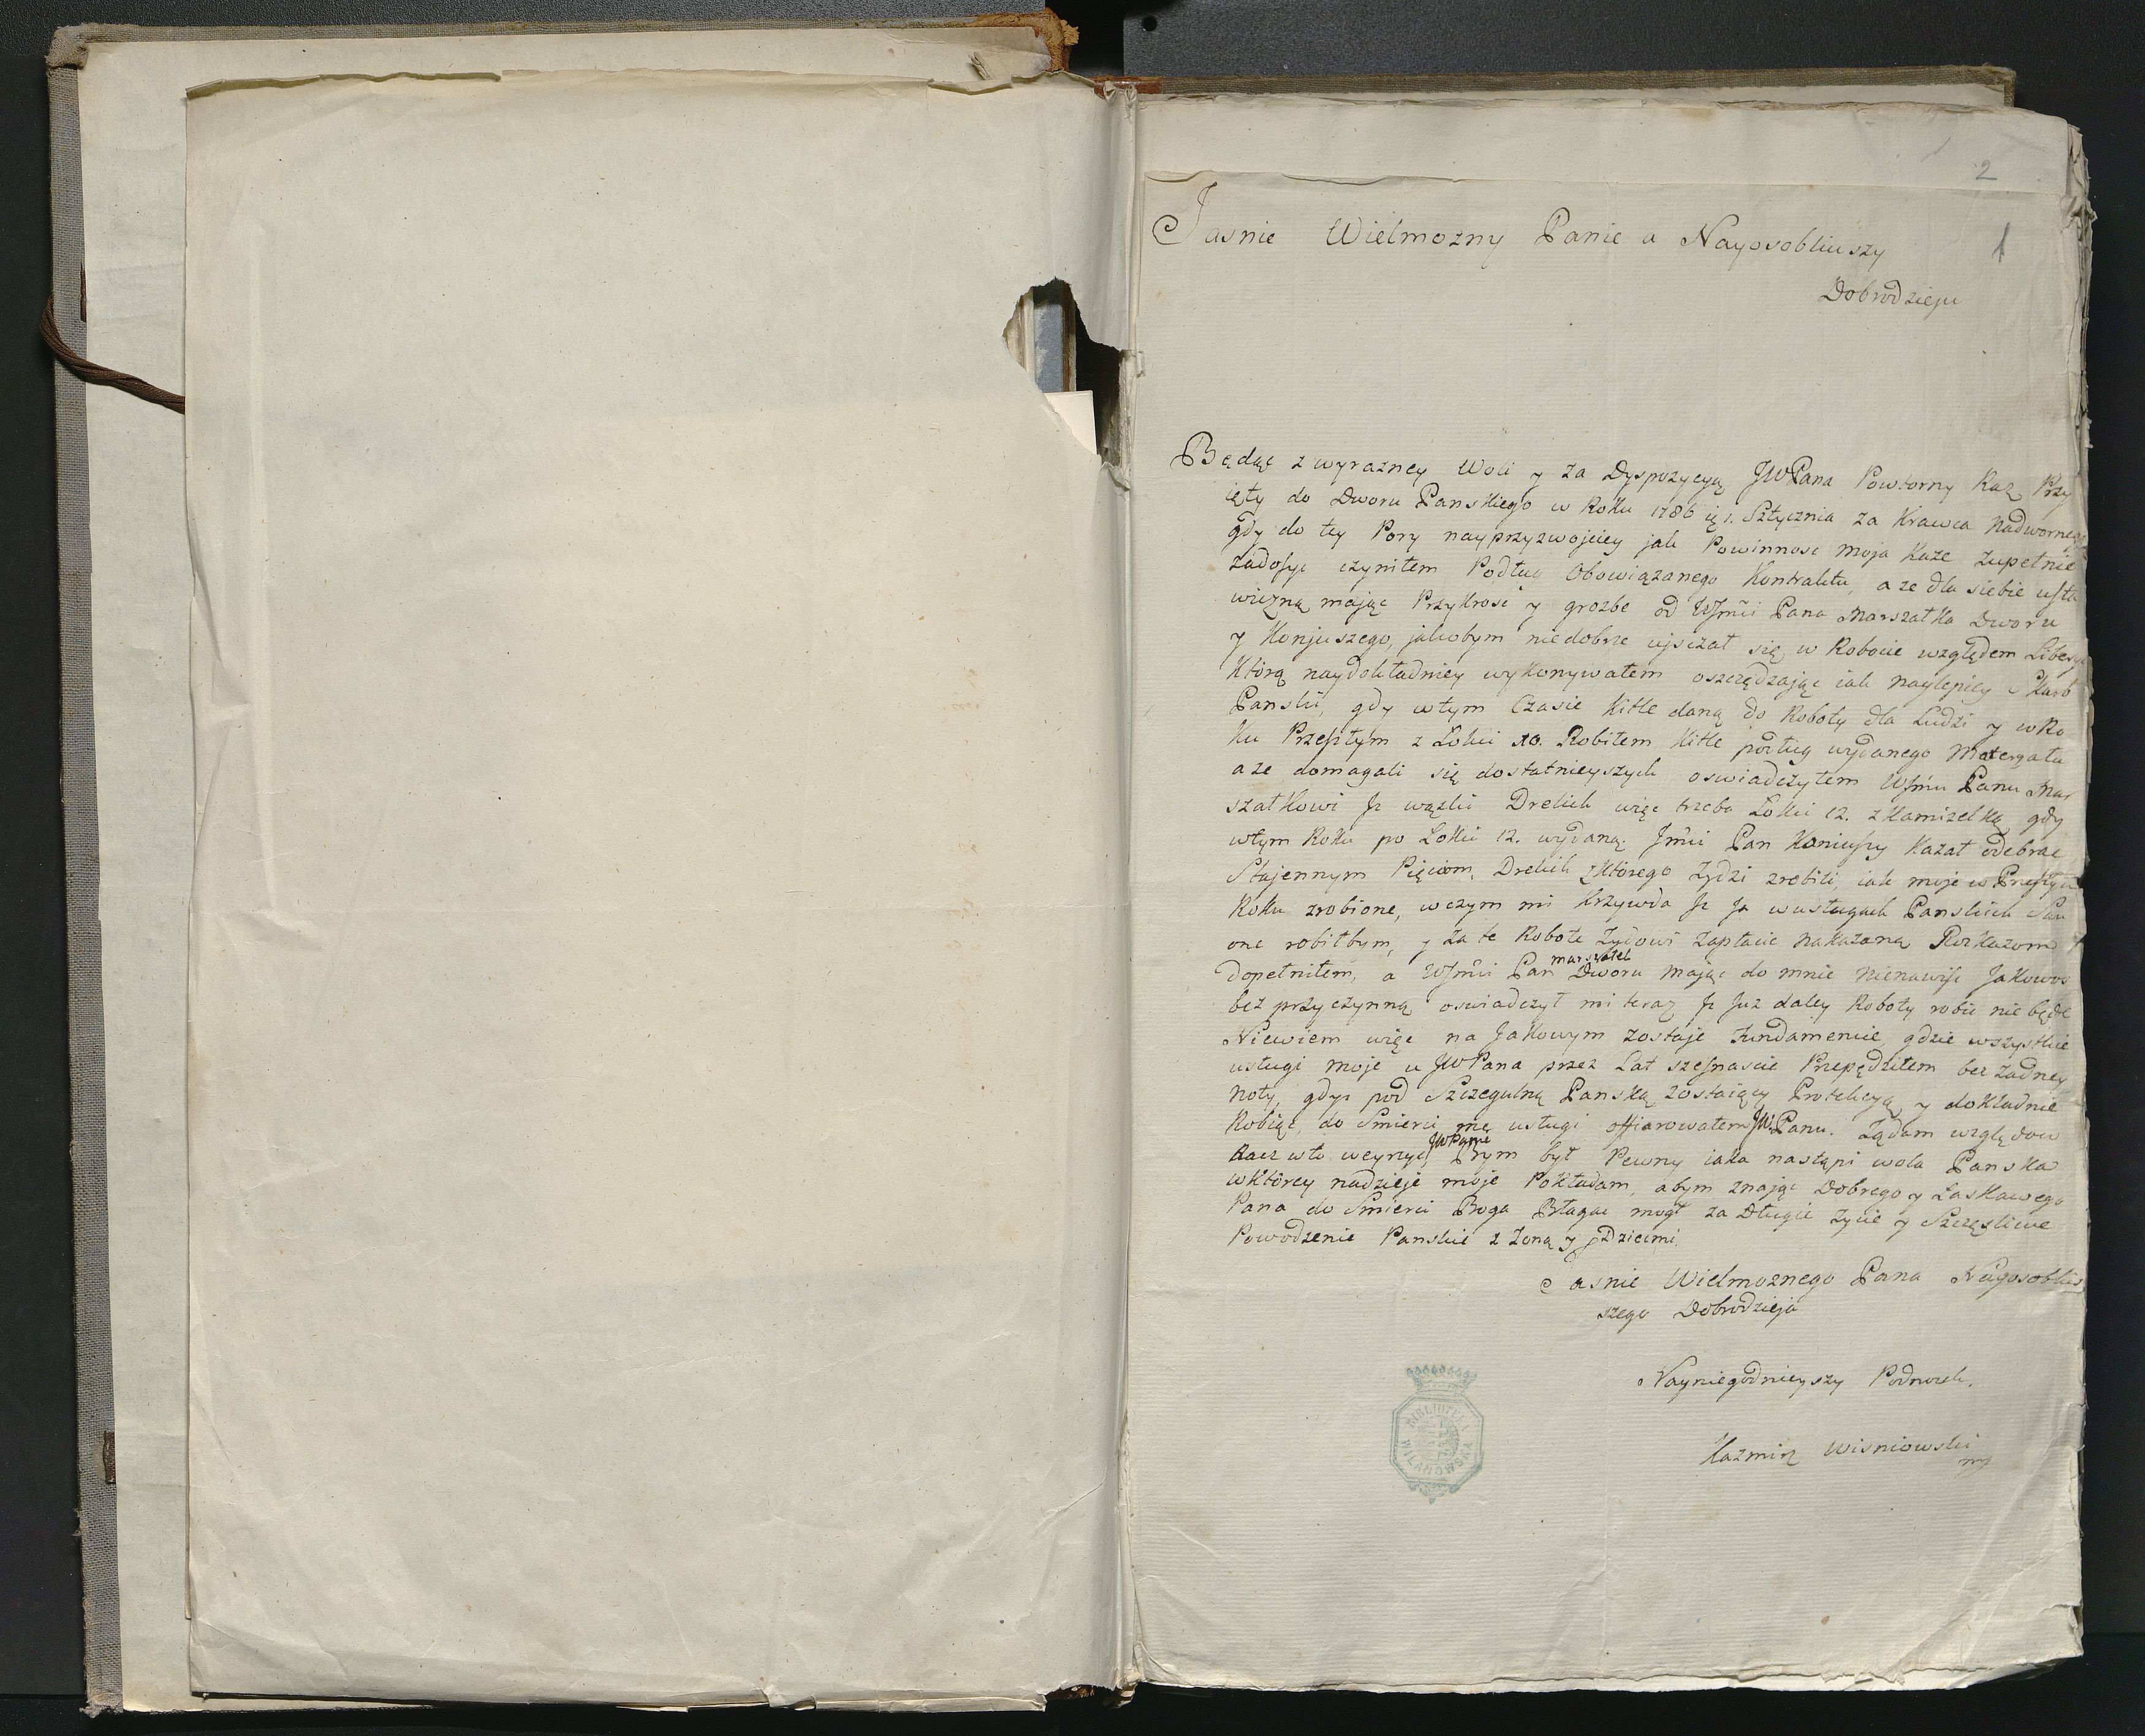 2
1
Jasnie Wielmozny Panie a Nayosobliwszy
Dobrodzieju
Będąc z wyrazney Woli y za Dyspozycyą JWPana Powtorny Raz Przy
ięty do Dworu Panskiego w Roku 1786 1. Stycznia za Krawca Nadwornego
gdy do tey Pory nayprzyzwojciey jak Powinnosc moja Kaze zupełnie
zadosyc czyniłem Podług Obowiązanego Kontraktu, a ze dla siebie usta
wiczną mając Przykrosc y grozbe od Pana Marszałka Dworu
y Konjuszego, jakobym niedobrze ujsczał się w Robocie względem Libery
Którą naydokładniey wykonywałem oszczędzając iak naylepiey Skarb
Panski, gdy wtym Czasie Kitle daną do Roboty dla Ludzi y w Ro
ku Przeszłym z Lokci 10. Robiłem Kitle podług wydanego Materyału
a ze domagali się dostatnieyszych oswiadczyłem Panu Mar
szałkowi Jz wązki Drelich więc trzeba Lokci 12. z Kamizelką gdy
wtym Roku po Lokci 12. wydaną. Jmci Pan Koniuszy Kazał odebrac
Stajennym Pięciom, Drelich z Którego Zydzi zrobili, iak moje w Przeszłym
Roku zrobione, wczym mi krzywda Jz Ja wusługach Panskich
one robiłbym, y za te Robote Zydowi Zapłacic nakazaną Rozkazom
marszałek
dopełniłem, a Pan Dworu mając do mnie Nienawisc Jakowos
bez przyczynną oswiadczył mi teraz Jz Juz daley Roboty robic nie będe
Niewiem więc na Jakowym zostaje Fundamencie, gdzie wszystkie
usługi moje u JWPana przez Lat szesnascie Przepędziłem bez zadney
Noty, gdyz pod Szczegulną Panską zostaiący Protekcyą y dokładnie
Robiąc, do Smierci me usługi offiarowałem JW. Panu. Ządam względow
JWPanie
Racz w to weyrzyc, bym był Pewny iaka nastąpi wola Panska
wktórey nadzieje moje Pokładam, abym znając Dobrego y Łaskawego
Pana do Smierci Boga Błagac mogł za Długie Zycie y Szczęsliwe
Powodzenie Panskie z Zoną y Dziecmi
Jasnie Wielmoznego Pana Nayosobliw
szego Dobrodzieja
Nayniegodnieyszy Podnozek,
Kazmirz Wisniowski
mp
BIBLIOTEKA
WILANOWSKA